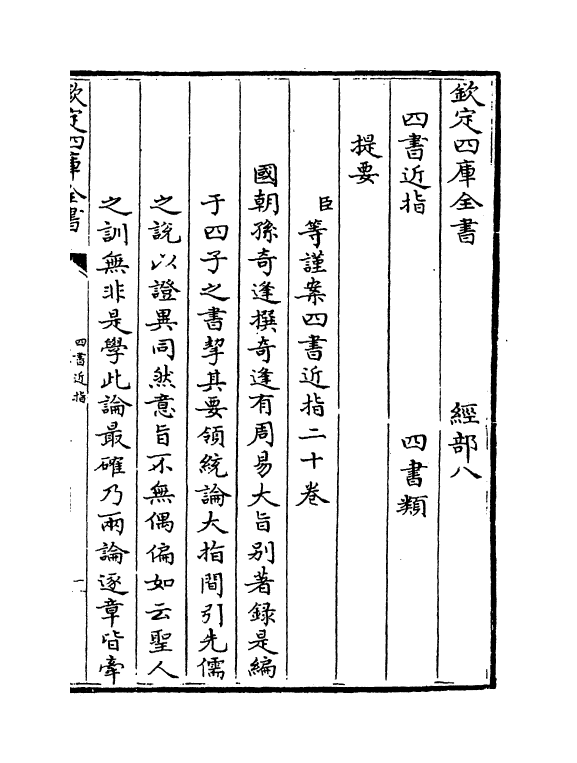 欽定四庫全書　經部八
四書近指　四書類
提要
臣等謹案四書近指二十卷
國朝孫奇逢撰奇逢有周易大旨别著録是編
于四子之書挈其要領統論大指間引先儒
之說以證異同然意旨不無偶偏如云聖人
之訓無非是學此論最確乃兩論逐章皆牽
欽定四庫全書
四書近指
一